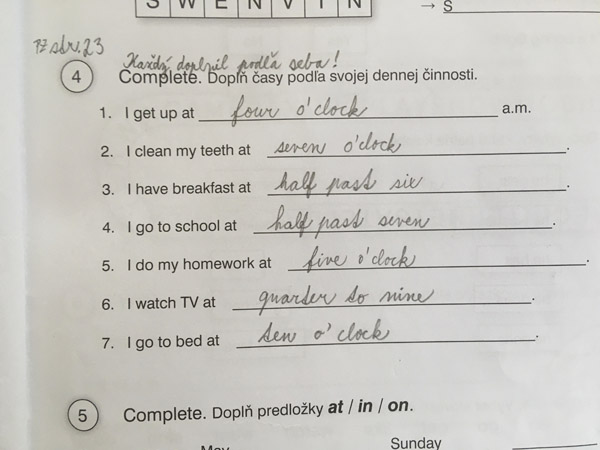 S W E N V T N
→ S
PZ str. 23
Každý doplnil podľa seba!
4 Complete. Doplň časy podľa svojej dennej činnosti.
1. I get up at four o'clock a.m.
2. I clean my teeth at seven o'clock.
3. I have breakfast at half past six.
4. I go to school at half past seven.
5. I do my homework at five o'clock.
6. I watch TV at quarter to nine.
7. I go to bed at ten o'clock.
5 Complete. Doplň predložky at / in / on.
May Sunday